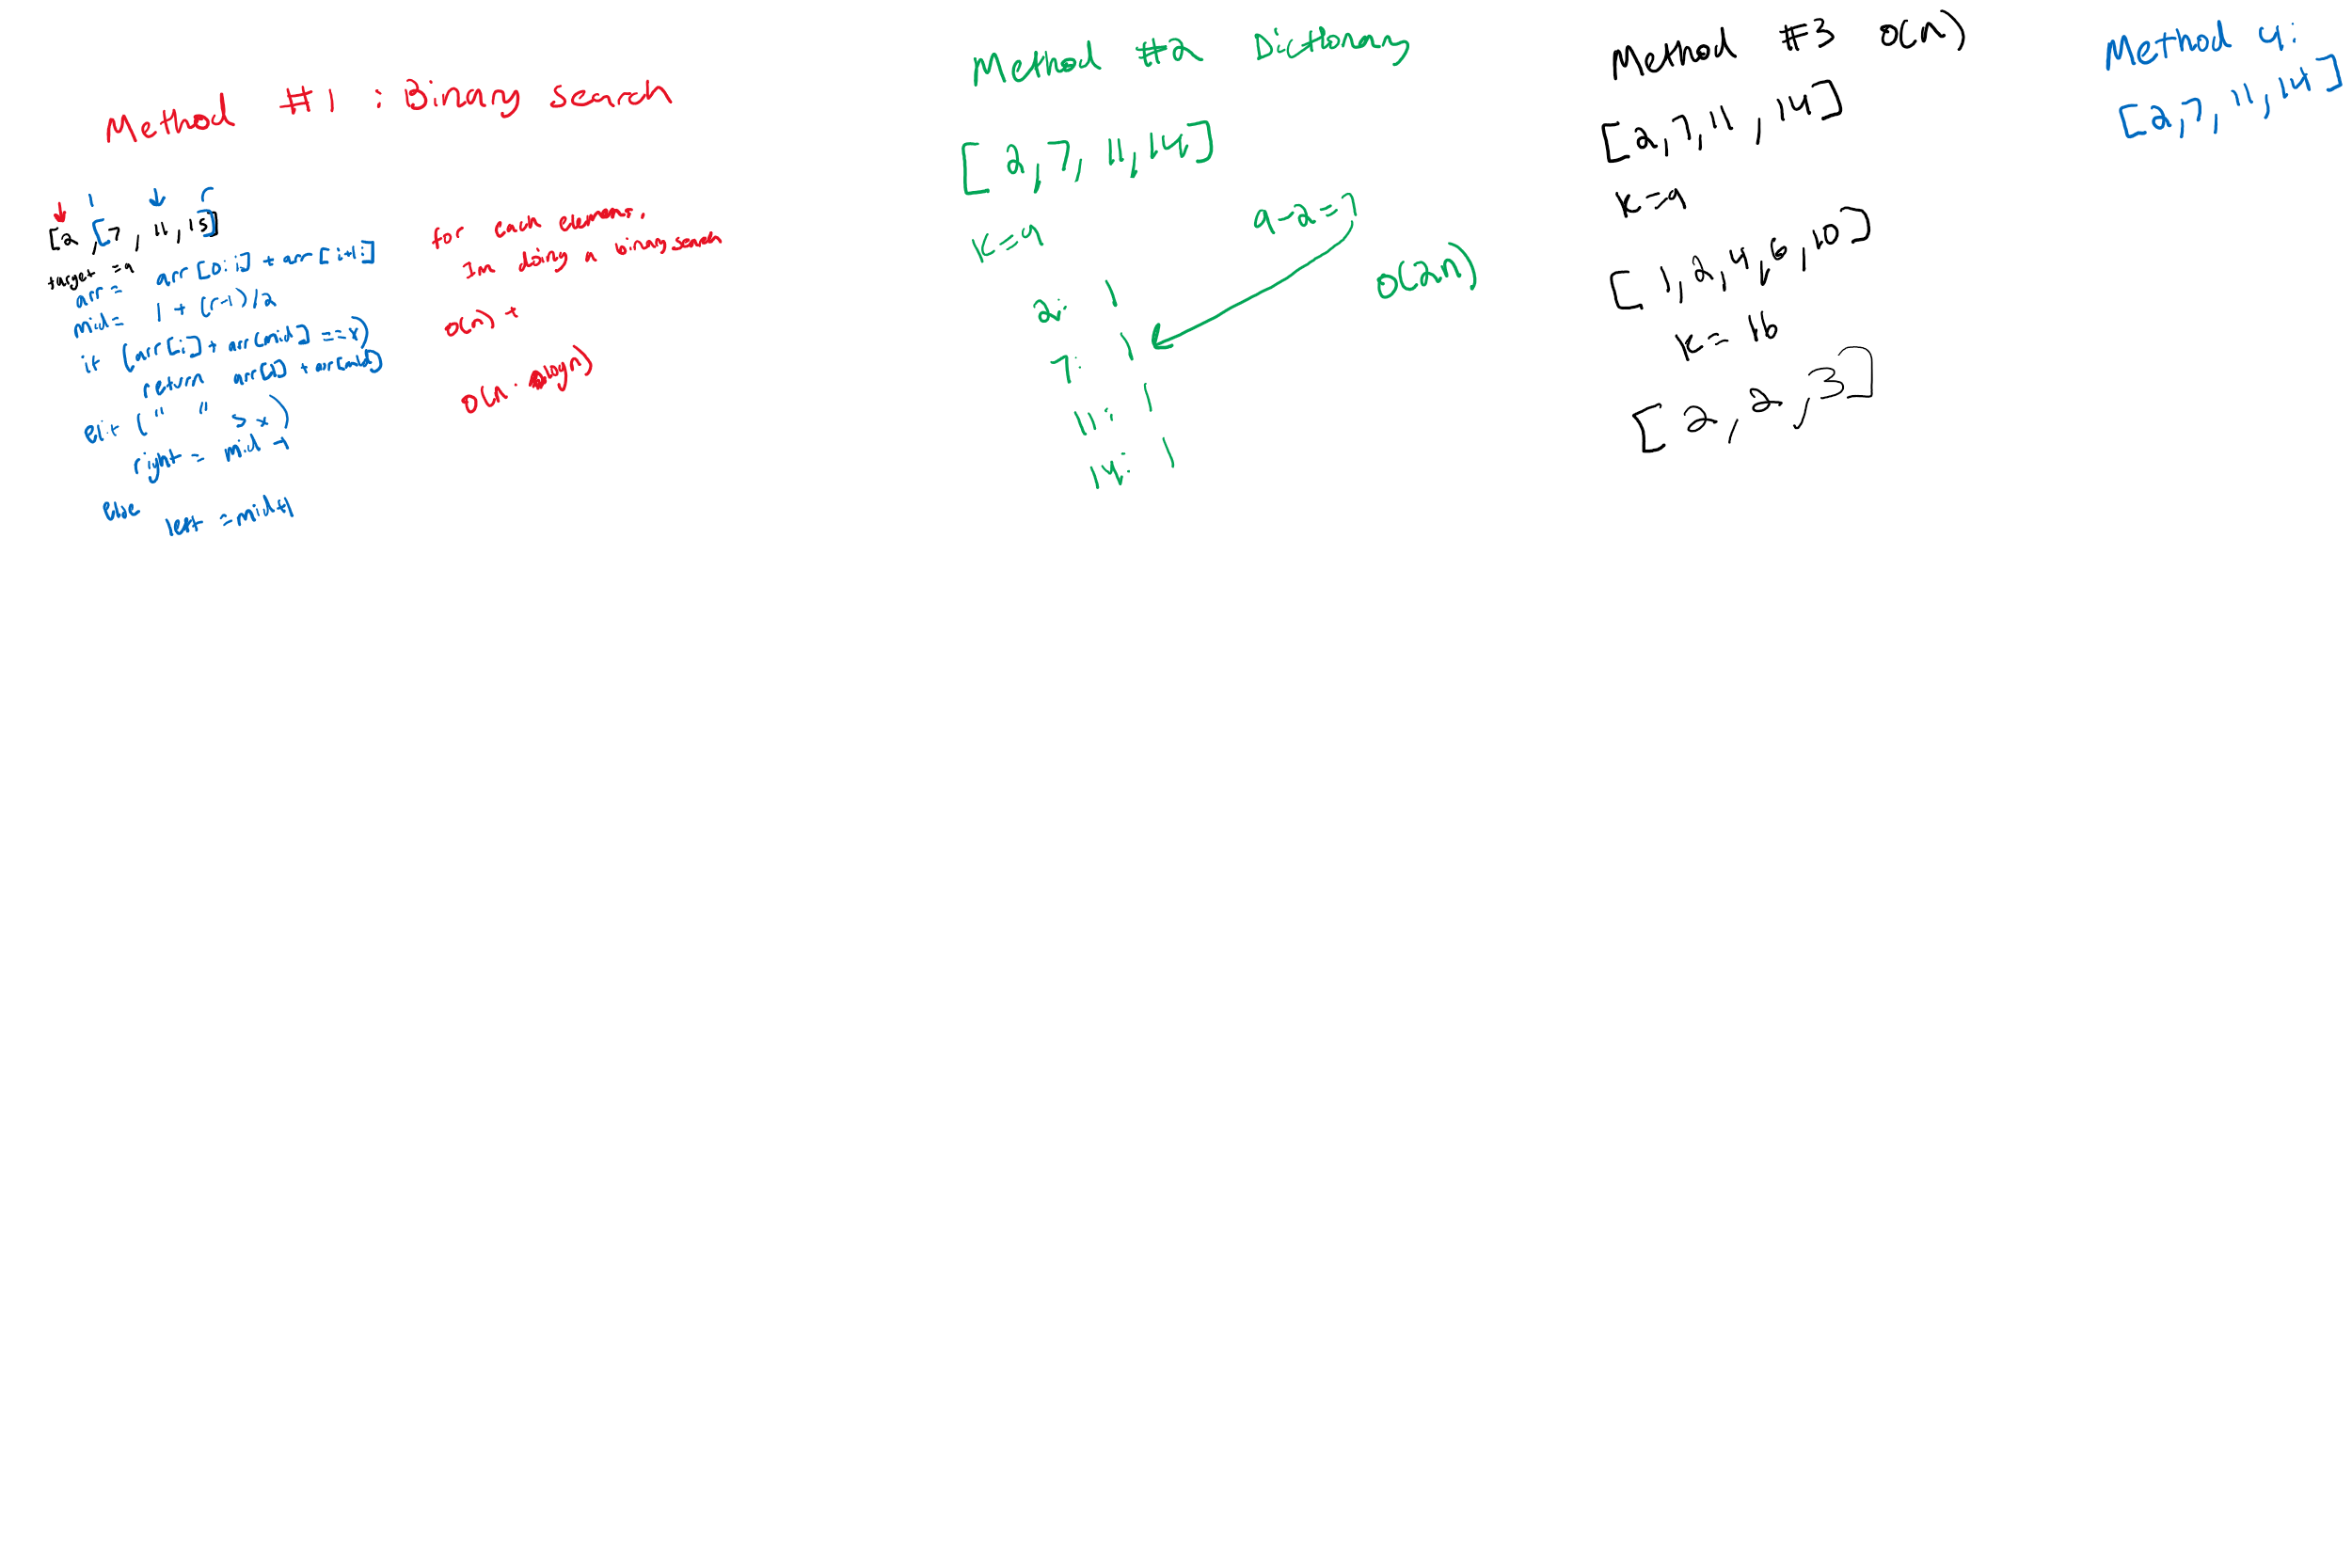 Method #1 : Binary search
[2, [7, 11, 15]]
target = 9
arr = arr[0:i] + arr[i+1:]
mid = l + (r-l)/2
if (arr[i] + arr[mid] == x)
return arr[i] + arr[mid]
elif (" " > x)
right = mid -1
else
left = mid+1
for each element,
Im doing a binary search
O(n) +
O(n · log n)
Method #2 Dictionary
[2, 7, 11, 14]
K=9
9-2=7
2: 1
7: 1
11: 1
14: 1
O(2n)
Method #3 O(n)
[2, 7, 11, 14]
K=9
[1, 2, 4, 6, 10]
K=16
[2, 2, 3]
Method 4:
[2, 7, 11, 14]